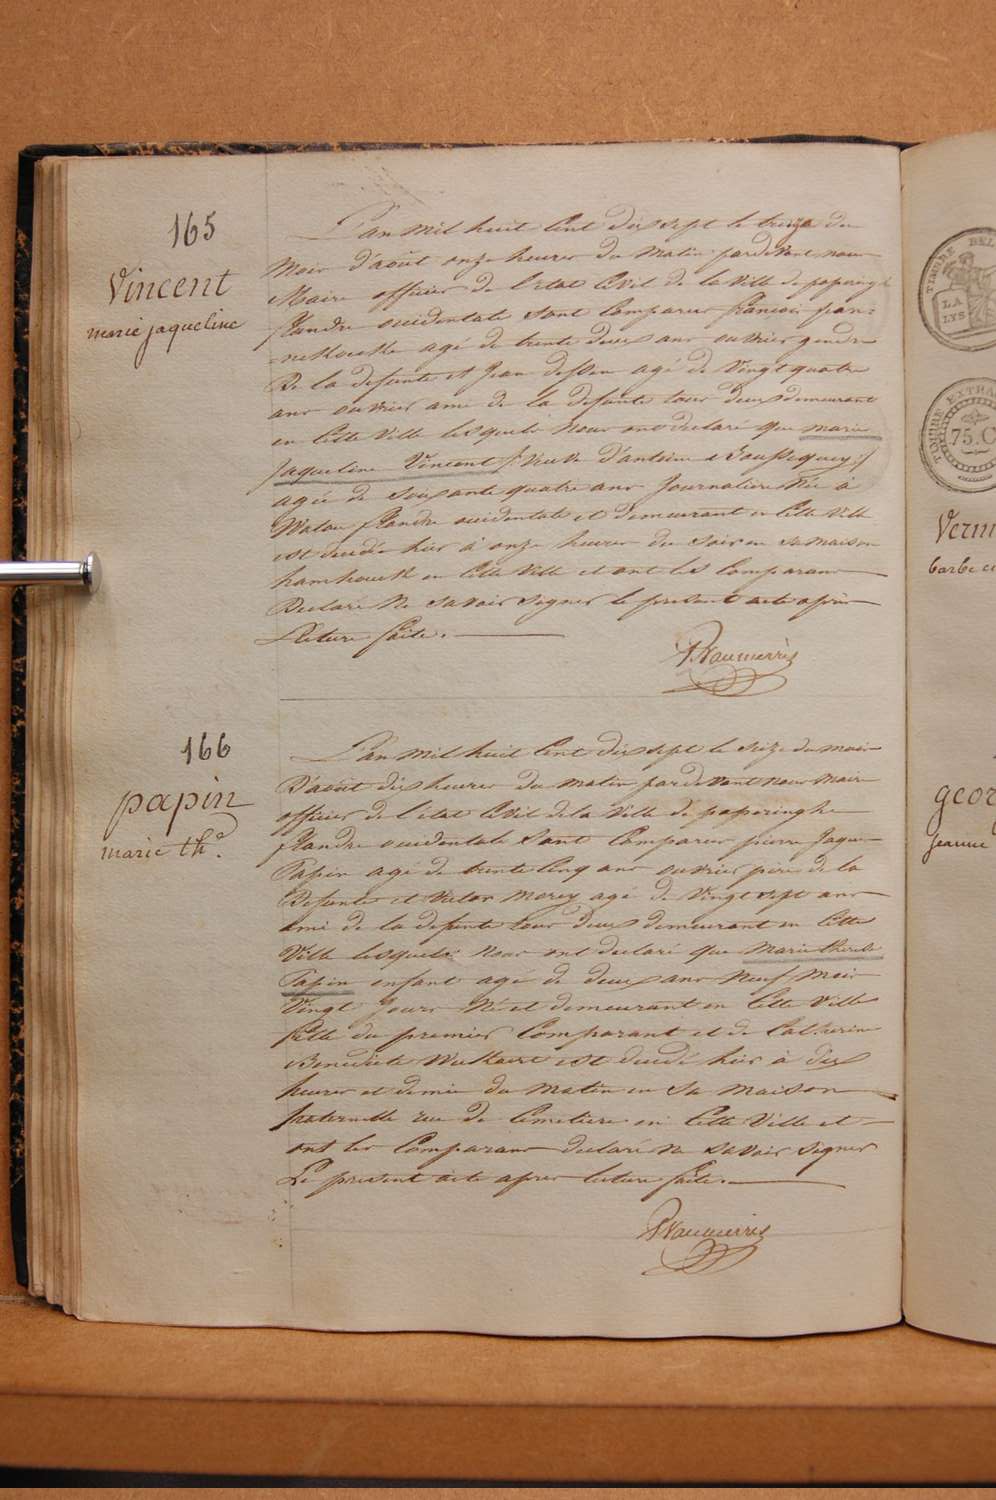 165
Vincent
marie jaqueline
L'an mil huit cent dix sept le treize du
mois d'août onze heures du matin pardevant nous
Maire officier de l'état Civil de la Ville de poperingh
flandre occidentale sont comparus francois
agé de trente deux ans ouvrier gendre
De la defunte et Jean agé de Vingt quatre
ans ouvrier ami de la defunte tous deux demeurant
en cette Ville lesquels nous ont declaré que marie
Jaqueline Vincent Veuve d'antoine
agée de soixante quatre ans Journaliere Née à
Watou flandre occidentale et demeurant en cette Ville
est decedée hier à onze heures du soir en sa maison
hamhouck en cette Ville et ont les Comparans
Declaré Ne savoir signer le present acte après
Lecture faite.
166
papin
marie th.e
L'an mil huit cent dix sept le seize du mois
D'août dix heures du matin pardevant nous Maire
officier de l'état Civil de la Ville de poperinghe
flandre occidentale sont Comparus pierre Jaque
Papin agé de trente Cinq ans ouvrier père de la
Defunte et Victor agé de Vingt sept ans
ami de la defunte tous deux demeurant en cette
Ville lesquels nous ont declaré que Marie therese
Papin enfant agé de deux ans Neuf Mois
Vingt Jours Né et demeurant en cette Ville
fille du premier Comparant et de Catherine
Benedicte est decedé hier à dix
heures et demie du matin en sa maison
paternelle rue de Cemetiere en cette Ville et
ont les Comparans declaré Ne savoir signer
Le present acte apres lecture faite.
TIMBRE BEL
LA
LYS
TIMBRE EXTRA
75.C
Verm
barbe
geor
jeanne